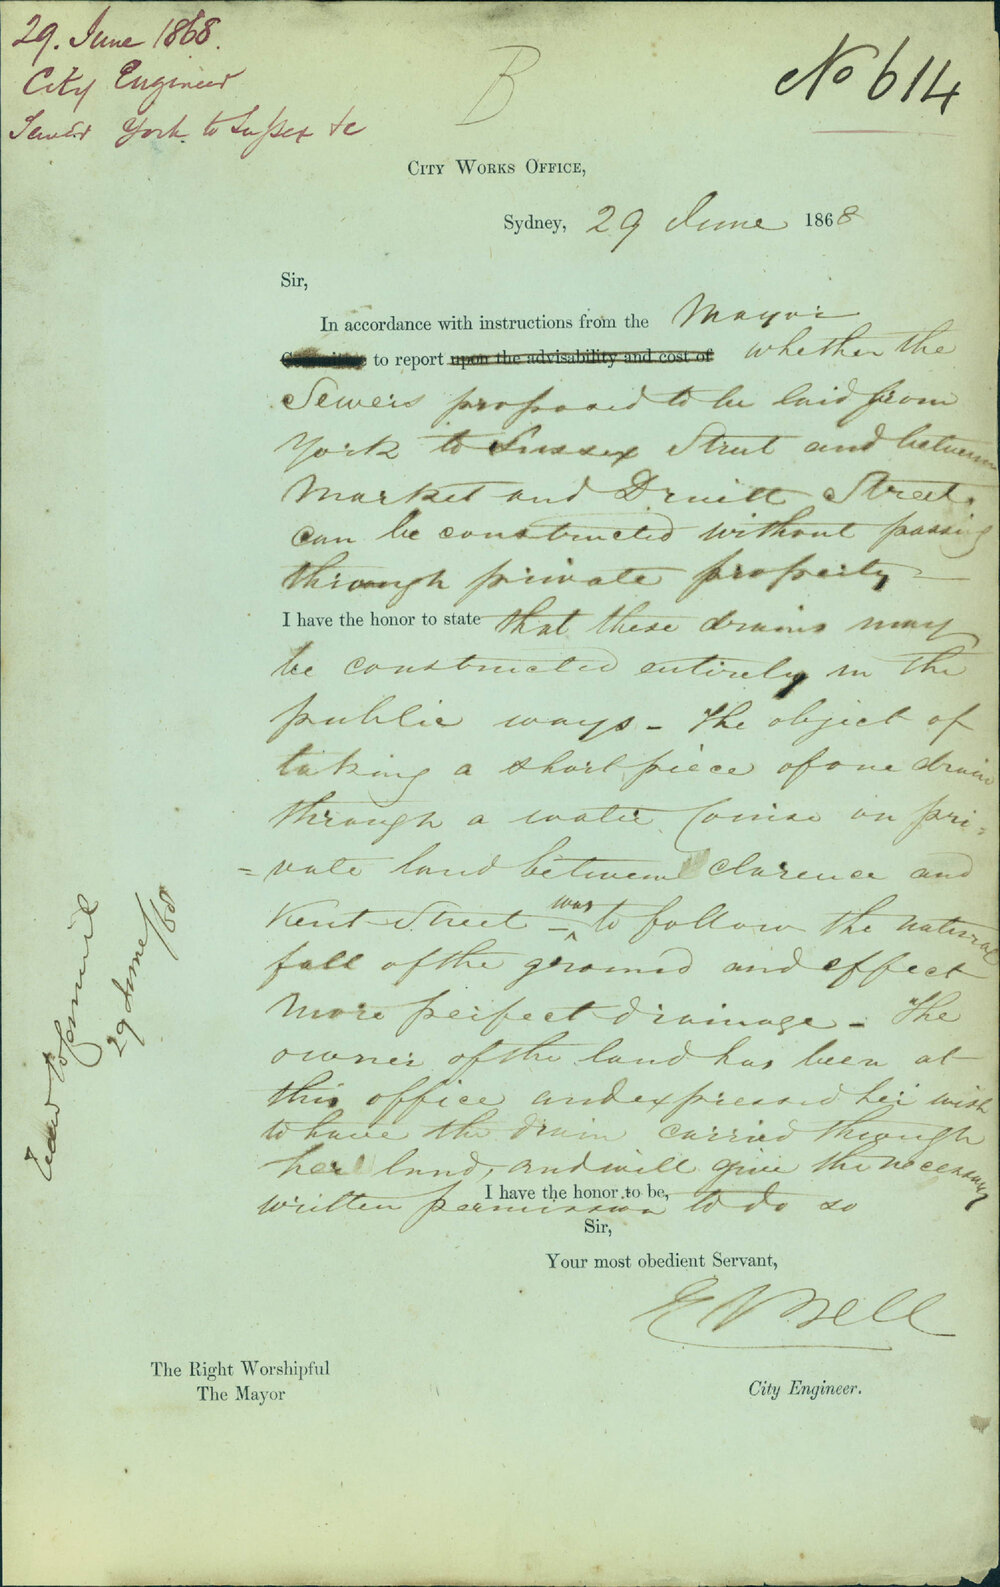 29. June 1868.
City Engineer
Sewer York to Sussex &c
B
No 614
City Works Office,
Sydney, 29 June 1868
Sir,
In accordance with instructions from the Mayor
Committee to report upon the advisability and cost of whether the
Sewers proposed to be laid from
York to Sussex Street and between
Market and Druitt Streets
can be constructed without passing
through private property —
I have the honor to state that these drains may
be constructed entirely in the
public ways - The object of
taking a short piece of one drain
through a water Course in pri=
=vate land between Clarence and
Kent Street was to follow the natural
fall of the ground and effect
more perfect drainage - The
owner of the land has been at
this office and expressed her wish
to have the drain carried through
her land, and will give the necessary
written permission to do so
I have the honor to be,
Sir,
Your most obedient Servant,
E Bell
The Right Worshipful
The Mayor
City Engineer.
Read Council
29 June/68